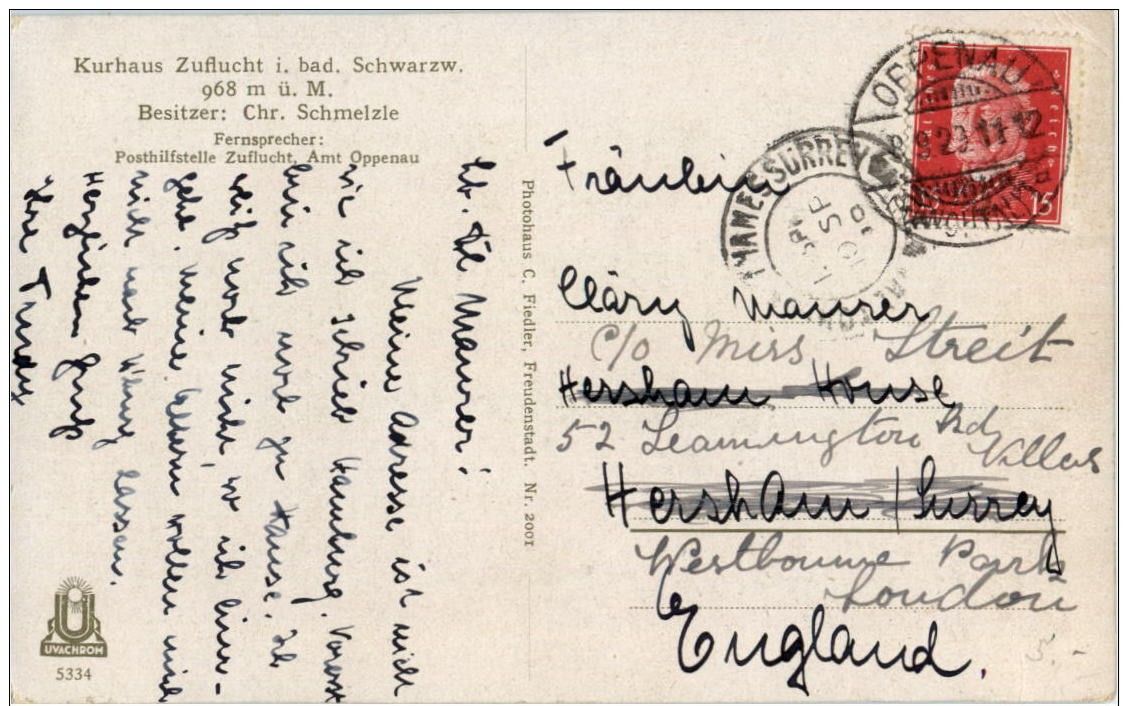 Kurhaus Zuflucht i. bad. Schwarzw.
968 m ü. M.
Besitzer: Chr. Schmelzle
Fernsprecher:
Posthilfstelle Zuflucht, Amt Oppenau
Lb. Frl Maurer!
Meine Adresse ist nicht
wie ich schrieb Hamburg. Vorerst
bin ich noch zu Hause. Ich
weiß noch nicht, ob ich hin-
gehe. Meine Eltern wollen mich
nicht nach lassen.
Herzlichen Gruß
Ihre Trudy
Photohaus C. Fiedler, Freudenstadt. Nr. 2001
UVACHROM
5334
OPPENAU
8.9.29.11-12
15
THAMES SURREY
10 SP
Fräulein
Cläry Maurer
c/o Miss Streit
Hersham House
52 Leamington Rd
Villas
Hersham / Surrey
Westbourne Park
London
England.
5.-